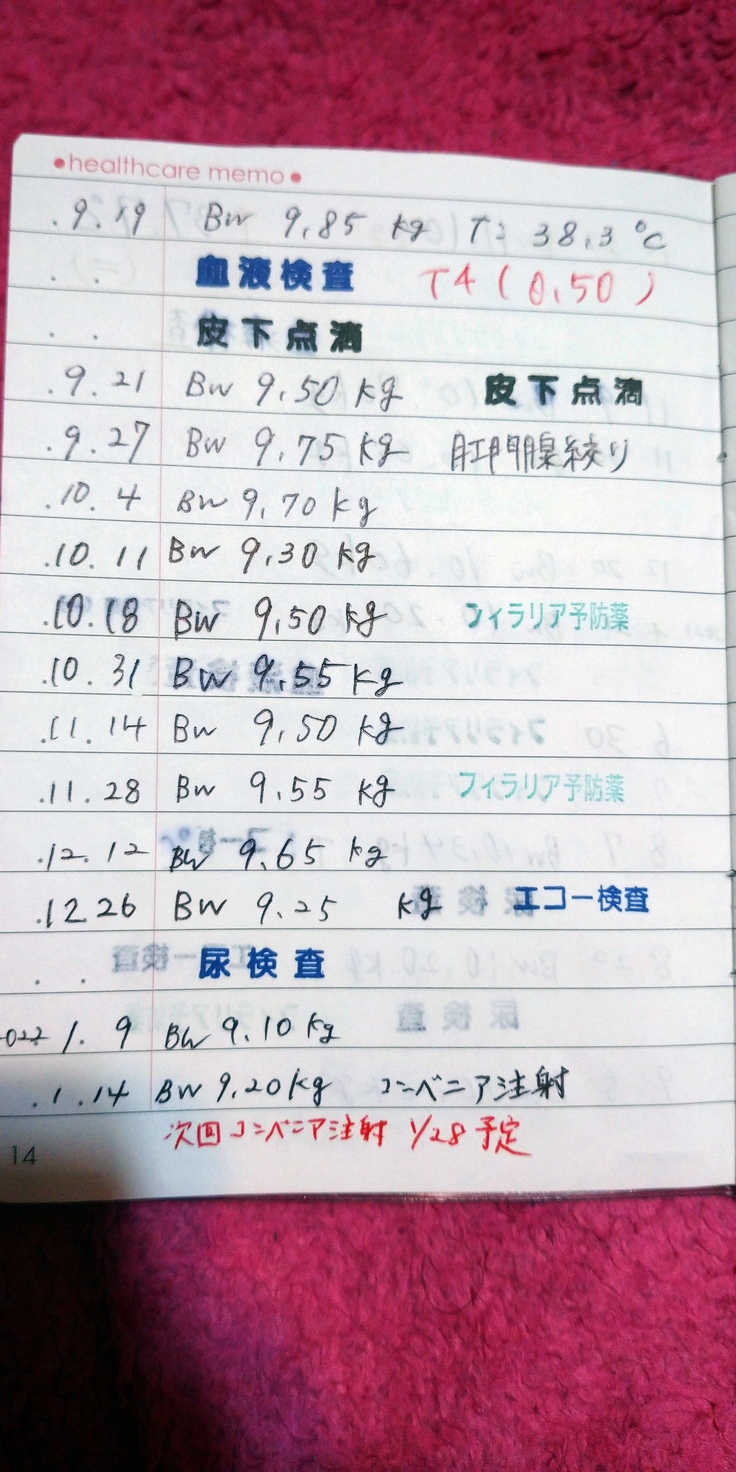 •healthcare memo•
.9.19 BW 9.85 kg T: 38.3 ℃
. . 血液検査 T4(0.50)
. . 皮下点滴
.9.21 BW 9.50 kg 皮下点滴
.9.27 BW 9.75 kg 肛門腺絞り
.10.4 BW 9.70 kg
.10.11 BW 9.30 kg
.10.18 BW 9.50 kg フィラリア予防薬
.10.31 BW 9.55 kg
.11.14 BW 9.50 kg
.11.28 BW 9.55 kg フィラリア予防薬
.12.12 BW 9.65 kg
.12 26 BW 9.25 kg エコー検査
. . 尿検査
2022 1.9 BW 9.10 kg
.1.14 BW 9.20 kg コンベニア注射
次回コンベニア注射 1/28 予定
14